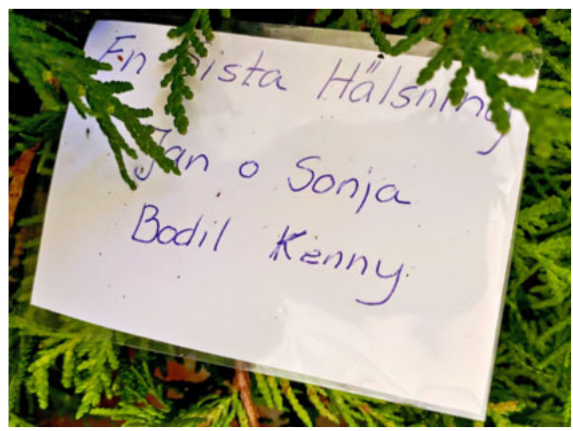 En sista Hälsning
Jan o Sonja
Bodil Kenny